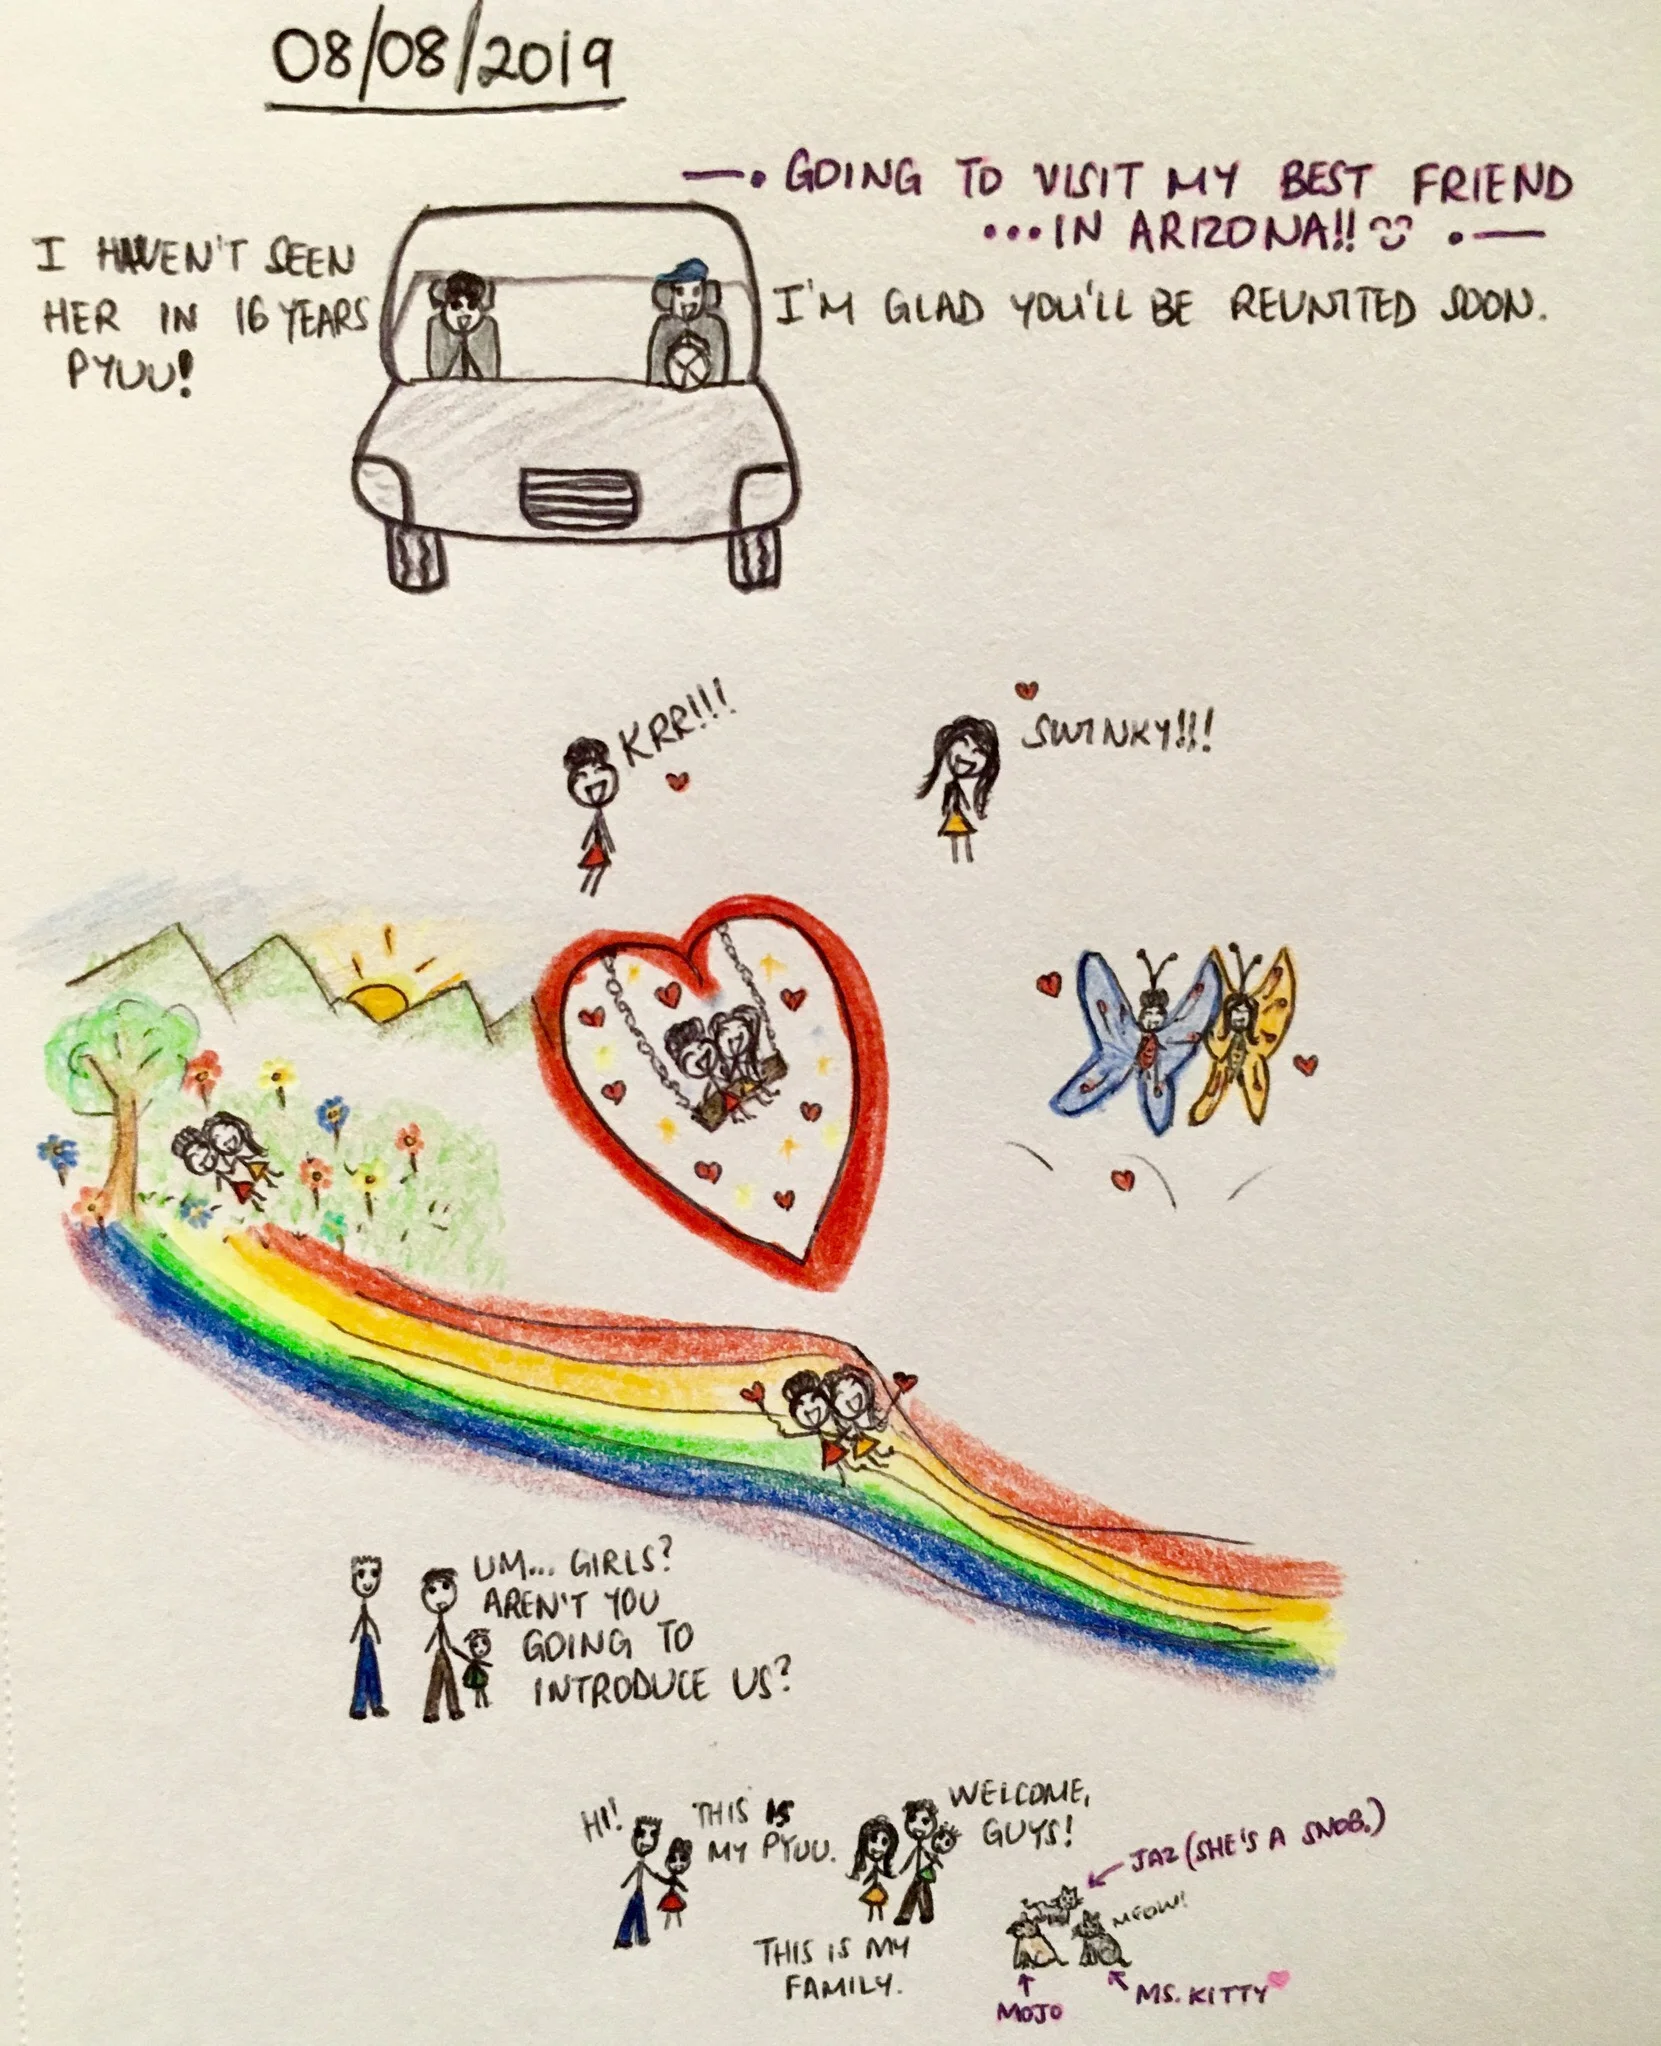 08/08/2019
—• GOING TO VISIT MY BEST FRIEND
•••IN ARIZONA!! •—
I HAVEN'T SEEN
HER IN 16 YEARS
PYUU!
I'M GLAD YOU'LL BE REUNITED SOON.
KRR!!!
SWINKY!!!
UM... GIRLS?
AREN'T YOU
GOING TO
INTRODUCE US?
HI!
THIS IS
MY PYUU.
WELCOME,
GUYS!
THIS IS MY
FAMILY.
JAZ (SHE'S A SNOB.)
MEOW!
MOJO
MS. KITTY